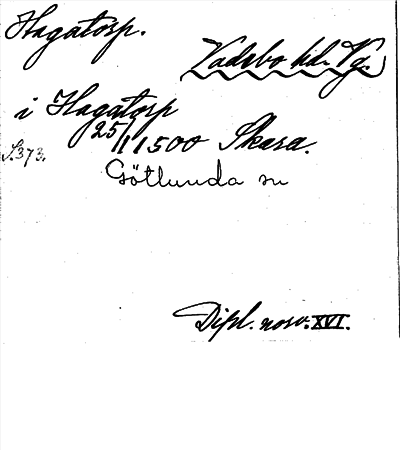 Hagatorp.
Vadsbo hd. Vg.
i Hagatorp
25/1 1500 Skara.
S.373.
Götlunda sn
Dipl. norv. XVI.